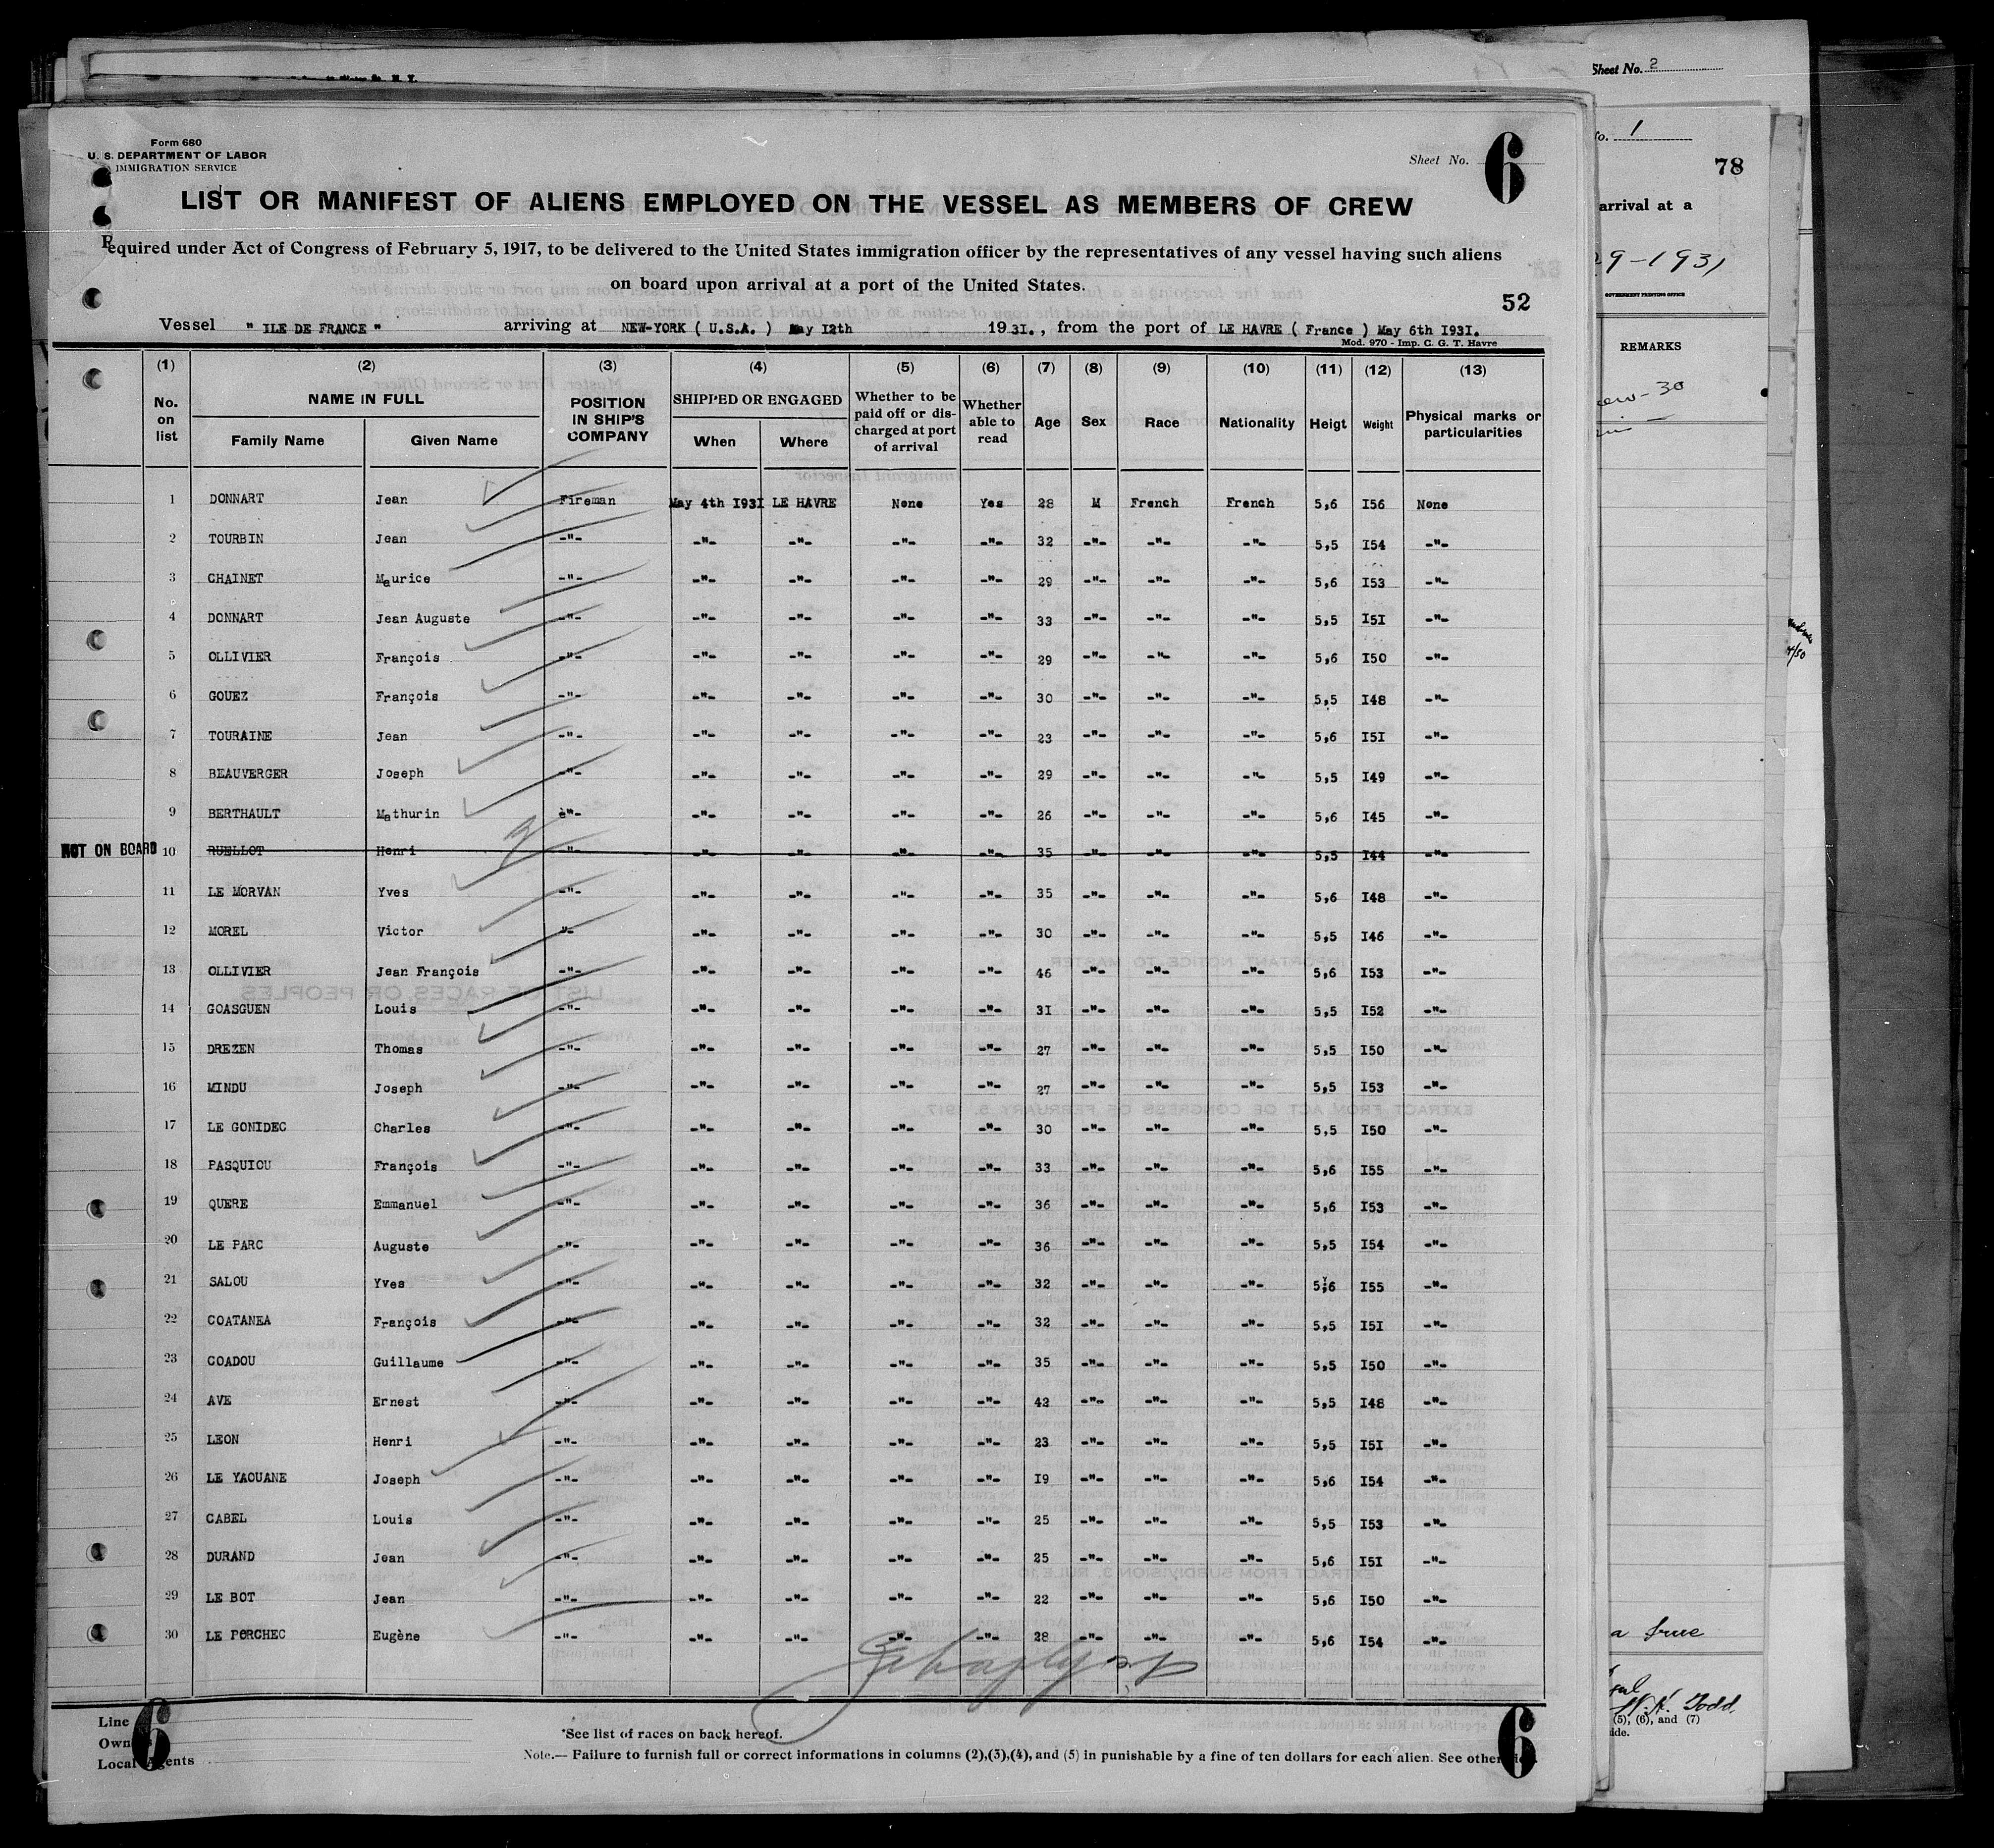 Sheet No. 2
No. 1
78
arrival at a
29-1931
GOVERNMENT PRINTING OFFICE
REMARKS
a true
W. H. Todd
(5), (6), and (7)
Form 680
U. S. DEPARTMENT OF LABOR
IMMIGRATION SERVICE
Sheet No. 6
LIST OR MANIFEST OF ALIENS EMPLOYED ON THE VESSEL AS MEMBERS OF CREW
Required under Act of Congress of February 5, 1917, to be delivered to the United States immigration officer by the representatives of any vessel having such aliens
on board upon arrival at a port of the United States.
52
Vessel " ILE DE FRANCE " arriving at NEW-YORK ( U.S.A. ) May I2th 1931., from the port of LE HAVRE ( France ) May 6th I93I.
Mod. 970 - Imp. C. G. T. Havre
(1) (2) (3) (4) (5) (6) (7) (8) (9) (10) (11) (12) (13)
No. on list NAME IN FULL Family Name Given Name POSITION IN SHIP'S COMPANY SHIPPED OR ENGAGED When Where Whether to be paid off or discharged at port of arrival Whether able to read Age Sex Race Nationality Heigt Weight Physical marks or particularities
1 DONNART Jean Fireman May 4th I93I LE HAVRE None Yes 28 M French French 5,6 I56 None
2 TOURBIN Jean -"- -"- -"- -"- -"- 32 -"- -"- -"- 5,5 I54 -"-
3 CHAINET Maurice -"- -"- -"- -"- -"- 29 -"- -"- -"- 5,6 I53 -"-
4 DONNART Jean Auguste -"- -"- -"- -"- -"- 33 -"- -"- -"- 5,5 I5I -"-
5 OLLIVIER François -"- -"- -"- -"- -"- 29 -"- -"- -"- 5,6 I50 -"-
6 GOUEZ François -"- -"- -"- -"- -"- 30 -"- -"- -"- 5,5 I48 -"-
7 TOURAINE Jean -"- -"- -"- -"- -"- 23 -"- -"- -"- 5,6 I5I -"-
8 BEAUVERGER Joseph -"- -"- -"- -"- -"- 29 -"- -"- -"- 5,5 I49 -"-
9 BERTHAULT Mathurin è"- -"- -"- -"- -"- 26 -"- -"- -"- 5,6 I45 -"-
NOT ON BOARD 10 RUELLOT Henri -"- -"- -"- -"- -"- 35 -"- -"- -"- 5,5 I44 -"-
11 LE MORVAN Yves -"- -"- -"- -"- -"- 35 -"- -"- -"- 5,6 I48 -"-
12 MOREL Victor "- -"- -"- -"- -"- 30 -"- -"- -"- 5,5 I46 -"-
13 OLLIVIER Jean François -"- -"- -"- -"- -"- 46 -"- -"- -"- 5,6 I53 -"-
14 GOASGUEN Louis -"- -"- -"- -"- -"- 3I -"- -"- -"- 5,5 I52 -"-
15 DREZEN Thomas -"- -"- -"- -"- -"- 27 -"- -"- -"- 5,5 I50 -"-
16 MINDU Joseph -"- -"- -"- -"- -"- 27 -"- -"- -"- 5,5 I53 -"-
17 LE GONIDEC Charles -"- -"- -"- -"- -"- 30 -"- -"- -"- 5,5 I50 -"-
18 PASQUIOU François -"- -"- -"- -"- -"- 33 -"- -"- -"- 5,6 I55 -"-
19 QUERE Emmanuel -"- -"- -"- -"- -"- 36 -"- -"- -"- 5,6 I53 -"-
20 LE PARC Auguste -"- -"- -"- -"- -"- 36 -"- -"- -"- 5,5 I54 -"-
21 SALOU Yves -"- -"- -"- -"- -"- 32 -"- -"- -"- 5,6 I55 -"-
22 COATANEA François -"- -"- -"- -"- -"- 32 -"- -"- -"- 5,5 I5I -"-
23 COADOU Guillaume -"- -"- -"- -"- -"- 35 -"- -"- -"- 5,5 I50 -"-
24 AVE Ernest -"- -"- -"- -"- -"- 42 -"- -"- -"- 5,5 I48 -"-
25 LEON Henri -"- -"- -"- -"- -"- 23 -"- -"- -"- 5,5 I5I -"-
26 LE YAOUANE Joseph -"- -"- -"- -"- -"- I9 -"- -"- -"- 5,6 I54 -"-
27 CABEL Louis -"- -"- -"- -"- -"- 25 -"- -"- -"- 5,5 I53 -"-
28 DURAND Jean -"- -"- -"- -"- -"- 25 -"- -"- -"- 5,6 I5I -"-
29 LE BOT Jean -"- -"- -"- -"- -"- 22 -"- -"- -"- 5,6 I50 -"-
30 LE PORCHEC Eugène -"- -"- -"- -"- -"- 28 -"- -"- -"- 5,6 I54 -"-
Line
Owners
Local Agents
6
*See list of races on back hereof.
Note.— Failure to furnish full or correct informations in columns (2),(3),(4), and (5) in punishable by a fine of ten dollars for each alien. See other side.
6